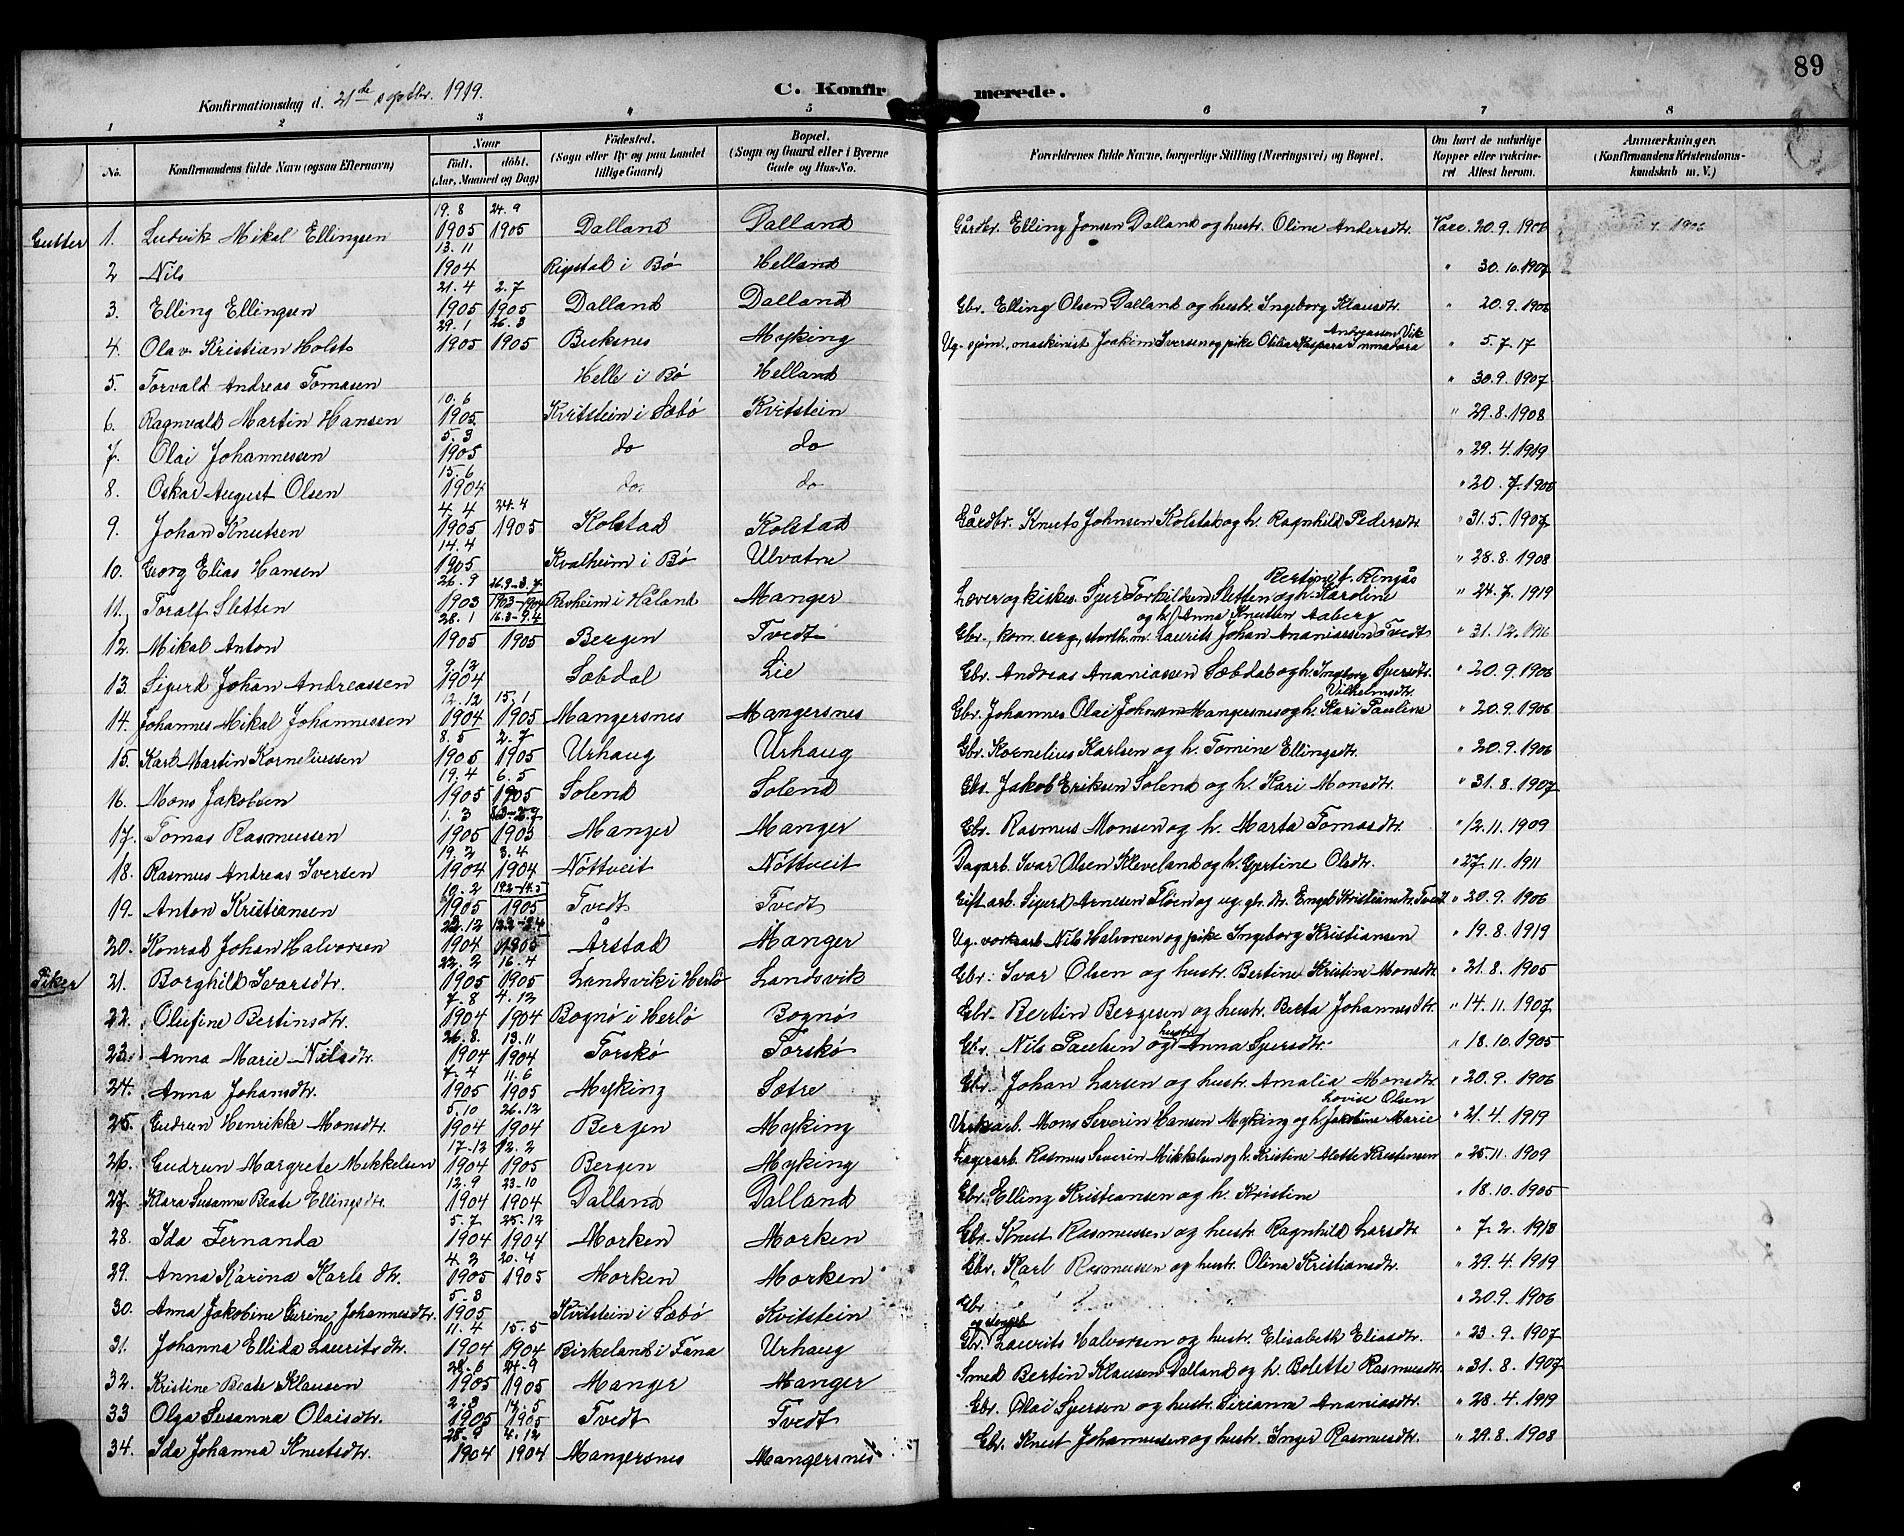 89
Konfirmationsdag d. 21de septbr. 1919.
C. Konfirmerede.
1 2 3 4 5 6 7 8
No. Konfirmandens fulde Navn (ogsaa Efternavn) Naar født. døbt. (Aar, Maaned og Dag) Fødested. (Sogn eller By og paa Landet tillige Gaard) Bopæl. (Sogn og Gaard eller i Byerne Gade og Hus-No. Forældrenes fulde Navne, borgerlige Stilling (Næringsvei) og Bopæl. Om havt de naturlige Kopper eller vakcineret Attest herom. Anmærkninger. (Konfirmandens Kristendomskundskab m. V.)
Gutter 1. Ludvik Mikal Ellingsen 19.8 1905 24.9 1905 Dalland Dalland Gårdbr. Elling Jonsen Dalland og hustr. Oline Andersdtr. Vacc. 20.9.1906
2 Nils 13.11 1904 i Bø Helland " 30.10.1907
3. Elling Ellingsen 21.4 1905 2.7 1905 Dalland Dalland Gbr. Elling Olsen Dalland og hustr. Ingeborg Klausdtr. " 20.9.1906
4. Olav Kristian Holst 29.1 1905 26.3 1905 Beksnes Myking Ug. sjøm., maskinist Joakim Iversen og pike " 5.7.17
5. Torvald Andreas Tomasen Helle i Bø Helland " 30.9.1907
6. Ragnvald Martin Hansen 10.6 1905. Kvitstein i Sæbø Kvitstein " 29.8.1908
7. Olai Johannessen 5.3 1905 do do " 29.4.1919
8. Oskar August Olsen 15.6 1904 do. do " 20.7.1905
9. Johan Knutsen 4.4 1905 24.4 1905 Kolstad Kolstad Gårdbr. Knut Johnsen Kolstad og h. Ragnhild Pedersdtr " 31.5.1907
10. Georg Elias Hansen 14.4 1905 Kvalheim i Bø Ulvatne " 28.8.1908
11. Toralf Sletten 26.9 1903 26.9-3.7 1903-1904 Revheim i Håland Manger Lærer og kirkes. Sjur Torkildsen Sletten og h. Karoline Bertine f. Ringås " 24.7.1919
12. Mikal Anton 28.1 1905 16.3-9.4 1905 Bergen Tvedt Gbr., kom. serg., Laurits Johan Ananiassen Tvedt og h. Anna Knutsen Aaberg " 31.12.1916
13. Sigurd Johan Andreassen 9.12 1904 Sæbdal Lie Gbr. Andreas Ananiassen Sæbdal og h. Ingeborg Sjursdtr. " 20.9.1906
14. Johannes Mikal Johannessen 12.12 1904 15.1 1905 Mangersnes Mangersnes Gbr. Johannes Olai Johnsen Mangersnes og h. Kari Pauline Vilhelmsdtr. " 20.9.1906
15. Karl Martin Korneliussen 8.5 1905 2.7 1905 Urhaug Urhaug Gbr. Kornelius Karlsen og h. Tomine Ellingsdtr. " 20.9.1906
16. Mons Jakobsen 19.4 1905 6.5 1905 Solend Solend Gbr. Jakob Eriksen Solend og h. Kari Monsdtr. " 31.8.1907
17. Tomas Rasmussen 1.3 1905 1905 Manger Manger Gbr. Rasmus Monsen og h. Marta Tomasdtr. " 12.11.1909
18. Rasmus Andreas Iversen 19.2 1904 3.4 1904 Nöttveit Nöttveit Dagarb. Ivar Olsen Kleveland og h. Gjertine Olsdtr. " 27.11.1911
19. Anton Kristiansen 19.2 1905 19.2-14.5 1905 Tvedt Tvedt Gift arb. Sigurd Arnesen Floen og ug. gb. dtr. Engel Kristiansdtr. Tvedt " 20.9.1906
20. Konrad Johan Halvorsen 22.12 1904 1905 Årstad Manger Ug. verksarb. Nils Halvorsen og pike Ingeborg Kristiansen " 19.8.1919
Piker 21. Borghild Ivarsdtr. 22.2 1905 16.4 1905 Landsvik i Herlø Landsvik Gbr. Ivar Olsen og hustr. Bertine Kristine Monsdtr. " 21.8.1905
22. Olufine Bertinsdtr. 7.8 1904 4.12 1904 Bognø i Herlø Bognø Gbr. Bertin Bergesen og hustr. Berta Johannesdtr. " 14.11.1907
23. Anna Marie Nilsdtr. 26.8. 1904 13.11 1904 Torskø Torskø Gbr. Nils Paulsen og hustr. Anna Sjursdtr. " 18.10.1905
24. Anna Johansdtr. 7.4 1905 11.6 1905 Myking Sætre Gbr. Johan Larsen og hustr. Amalia Monsdtr. " 20.9.1906
25. Gudrun Henrikke Monsdtr. 5.10 1904 26.12 1904 Bergen Myking Verksarb. Mons Severin Hansen Myking og h. Jakobine Marie Lovise Olsen " 21.4.1919
26. Gudrun Margrete Mikkelsen 17-12 1904 12.2 1905 Bergen Myking Lagerarb. Rasmus Severin Mikkelsen og h. Kristine Alette Kristensen " 25.11.1909
27. Klara Susanne Beate Ellingsdtr. 12.9 1904 23-10 1904 Dalland Dalland Gbr. Elling Kristiansen og h. Kristine " 18.10.1905
28. Ida Fernanda 5.7 1904 25.12 1904 Morken Morken Gbr. Knut Rasmussen og hustr. Ragnhild Larsdtr. " 7.2.1913
29. Anna Karina Karlsdtr. 4.2 1905 20.4 1905 Morken Morken Gbr. Karl Rasmussen og hustr. Olina Kristiansdtr. " 29.4.1919
30. Anna Jakobine Gurine Johannesdtr. 5.3 1905 Kvitstein i Sæbø Kvitstein Gbr. " 20.9.1906
31. Johanna Ellida Lauritsdtr. 11.4 1904 15.5 1904 Birkeland i Fana Urhaug Gbr. Laurits Halvorsen og hustr. Elisabeth Eliasdtr. " 23.9.1907
32. Kristine Beate Klausen 28.6 1905 24.9 1905 Manger Manger Smed Bertin Klausen Dalland og h. Bolette Rasmusdtr " 31.8.1907
33 Olga Susanna Olaisdtr. 2.3 1905 14.5 1905 Tvedt Tvedt Gbr. Olai Sjursen og hustr. Sirianna Ananiasdtr. " 28.4.1919
34. Ida Johanna Knutsdtr. 28.9 1904 4.12 1904 Mangersnes Mangersnes Gbr. Knut Johannessen og hustr. Inger Rasmusdtr. " 29.8.1908